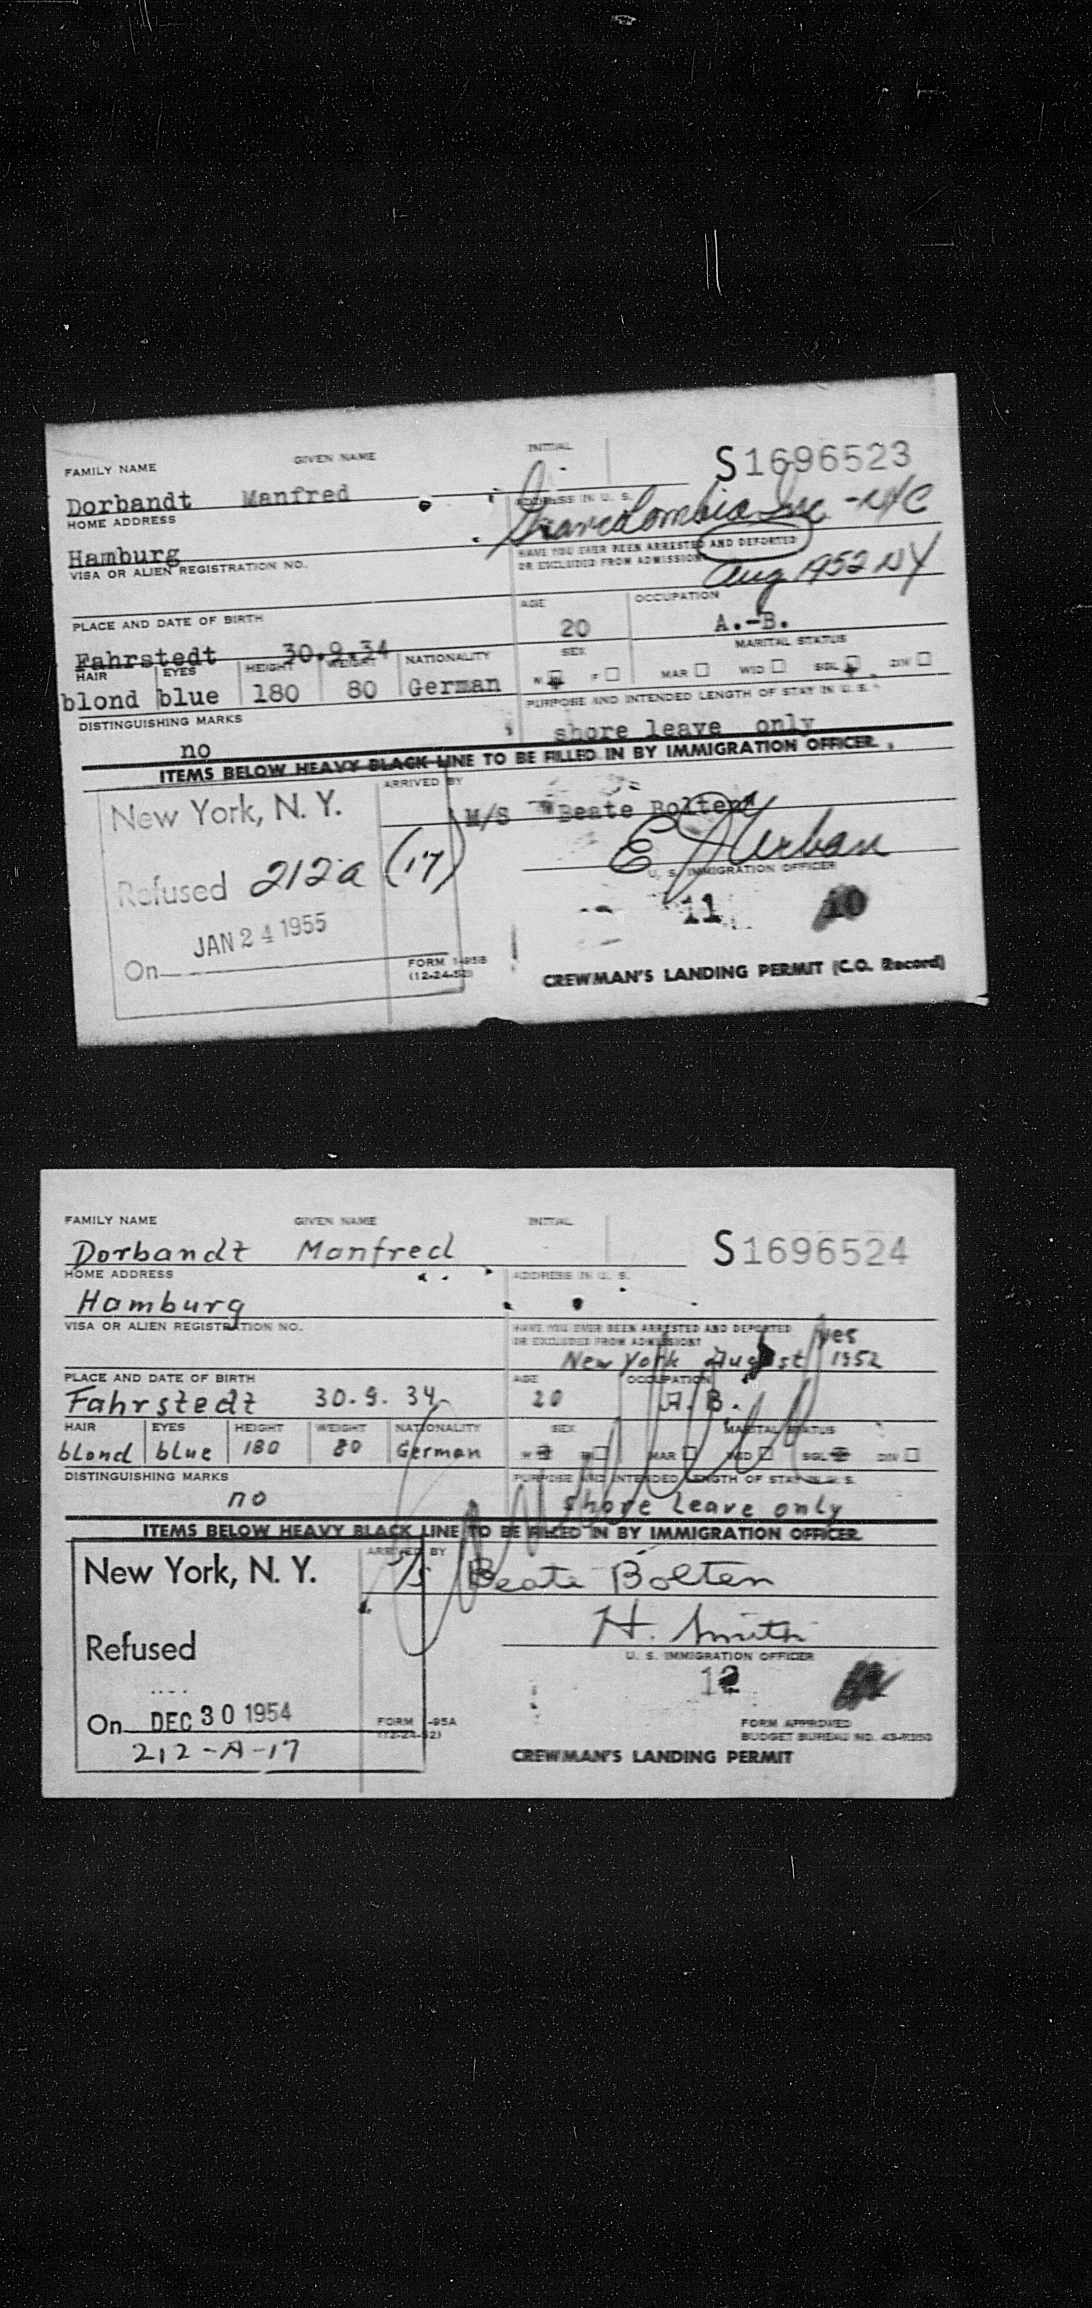 FAMILY NAME GIVEN NAME INITIAL
S1696523
Dorbandt Manfred
HOME ADDRESS ADDRESS IN U. S.
Inc - NYC
Hamburg
VISA OR ALIEN REGISTRATION NO. HAVE YOU EVER BEEN ARRESTED AND DEPORTED
OR EXCLUDED FROM ADMISSION
Aug 1952 NY
PLACE AND DATE OF BIRTH AGE OCCUPATION
Fahrstedt 30.9.34 20 A.-B.
HAIR EYES HEIGHT WEIGHT NATIONALITY SEX MARITAL STATUS
blond blue 180 80 German M F MAR WID SGL DIV
DISTINGUISHING MARKS PURPOSE AND INTENDED LENGTH OF STAY IN U. S.
no shore leave only
ITEMS BELOW HEAVY BLACK LINE TO BE FILLED IN BY IMMIGRATION OFFICER.
New York, N. Y. ARRIVED BY
M/S "Beate Bolten"
Refused 212a (17) E J Urban
U. S. IMMIGRATION OFFICER
JAN 24 1955 11 10
On
FORM I-95B
(12-24-52)
CREWMAN'S LANDING PERMIT (C.O. Record)
FAMILY NAME GIVEN NAME INITIAL
S1696524
Dorbandt Manfred
HOME ADDRESS ADDRESS IN U. S.
Hamburg
VISA OR ALIEN REGISTRATION NO. HAVE YOU EVER BEEN ARRESTED AND DEPORTED
OR EXCLUDED FROM ADMISSION? yes
New York August 1952
PLACE AND DATE OF BIRTH AGE OCCUPATION
Fahrstedt 30.9.34 20 A. B.
HAIR EYES HEIGHT WEIGHT NATIONALITY SEX MARITAL STATUS
blond blue 180 80 German M F MAR WID SGL DIV
DISTINGUISHING MARKS PURPOSE AND INTENDED LENGTH OF STAY IN U. S.
no shore leave only
ITEMS BELOW HEAVY BLACK LINE TO BE FILLED IN BY IMMIGRATION OFFICER.
New York, N. Y. ARRIVED BY
Beate Bolten
Refused H. Smith
U. S. IMMIGRATION OFFICER
12
On DEC 30 1954
212-A-17
FORM I-95A
(12-24-52)
FORM APPROVED
BUDGET BUREAU NO. 43-R350
CREWMAN'S LANDING PERMIT